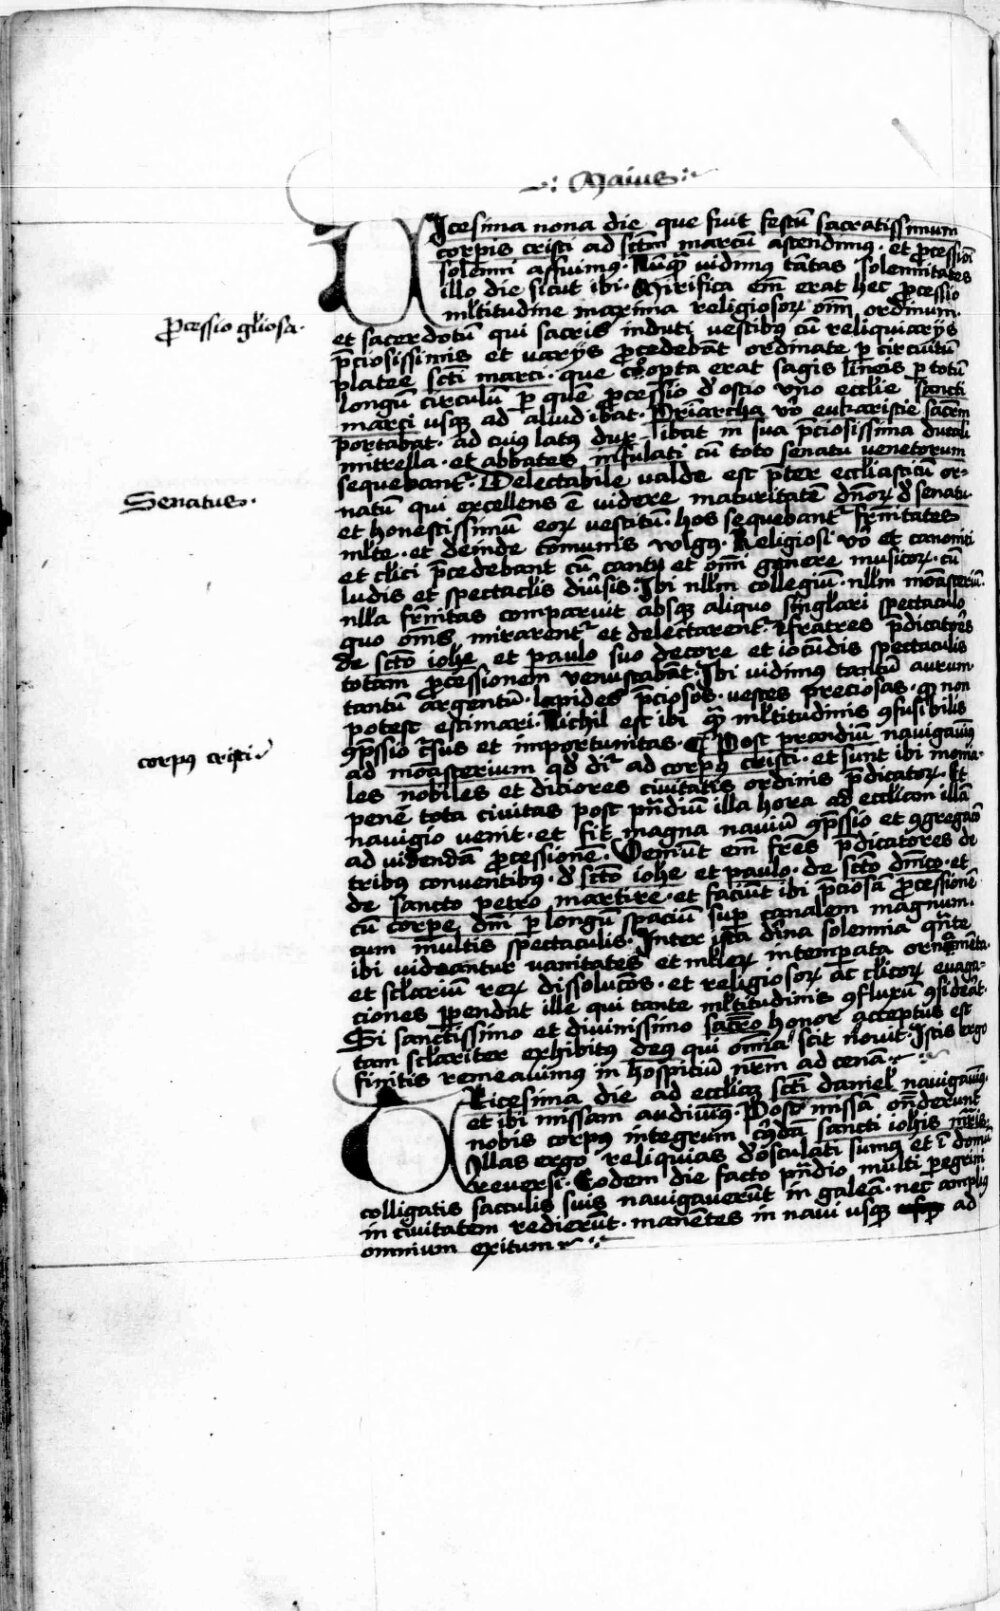 Maius
Vicesima nona die que fuit festū sacratissimum
corpis cristi ad sctm marcū ascendimꝰ · et ꝓcessiōi
solenni affuimꝰ · Nūqꝫ vidimꝰ tātas solennitates
illo die sicut ibi · Mirifica em̄ erat hec ꝓcessio
ml̄titudine maxima religiosoꝝ om̄i ordinum ·
et sacerdotū qui sacris induti vestibꝰ cū reliquiarijs
p̄ciosissimis et varijs ꝓcedebāt ordinate ꝑ circuitū
platee scti marci · que coopta erat sagis lineis ꝑ totū
longū circulū ꝑ quē ꝓcessio d̓ ostio vno eccl̄ie sancti
marci vsqꝫ ad aliud ibat · Priarcha vō eukaristie sacrm̄
portabat · ad cuiꝰ latꝰ dux ibat in sua p̄ciosissima ducali
mitrella · et abbates insulati cū toto senatu venetorum
sequebant᷑ · Delectabile valde est p̄ter eccl̄iasticū or-
natū qui excellens ē videre maturitatē dn̄oꝝ d̓ senatu
et honestissimū eoꝝ vestitū · hos sequebant᷑ fr̄nitates
ml̄te · et deinde cōmunis vulgꝰ · Religiosi vō et canonici
et cl̄ici p̄cedebant cū cantu et om̄i genere musicoꝝ · cū
ludis et spectacl̄is diūsis · Ibi nll̄m collegiū · nll̄m monasteriū ·
nll̄a fr̄nitas comparuit absqꝫ aliquo singlari spectaculo
quo om̄s mirarent᷑ et delectarent᷑ · fratres p̄dicatores
de scto ioh̄e et paulo suo decore et iocūdis spectaculis
totam ꝓcessionem venustabāt · Ibi vidimꝰ tantū aurum
tantū argentū · lapides p̄ciosos · vestes preciosas · qꝫ non
potest estimari · Nichil est ibi qꝫ ml̄titudinis ꝯfusibilis
ꝯp̄ssio c̄sus et importunitas · Post prandiū navigauimꝰ
ad monasterium qd̓ dr̄ ad corpꝰ cristi · et sunt ibi monia-
les nobiles et ditiores civitatis ordinis p̄dicatoꝝ · Et
pene tota civitas post prn̄diū illa hora ad eccl̄iam illā
navigio venit · et fit magna naviū ꝯp̄ssio et ꝯgregacō
ad videndā ꝓcessionē · Veniūt em̄ fres p̄dicatores de
tribꝰ conventibꝰ · d̓ scto ioh̄e et paulo · de scto dnīco · et
de sancto petro martire · et faciūt ibi p̄ciosā ꝓcessionē
cū corpe dn̄i ꝑ longū spaciū suꝑ canalem magnum ·
cum multis spectaculis · Inter ista diīna solennia qn̄te
ibi videantur vanitates et ml̄ieꝝ intemperata ornamēta ·
et sclariū reꝝ dissolucōs · et religiosoꝝ ac cl̄icoꝝ evaga-
ciones ꝑpendat ille qui tante ml̄titudinis ꝯfluxū ꝯsideāt ·
Si sanctissimo et divinissimo sacro honor acceptus est
tam sclariter exhibitꝰ deꝰ qui om̄ia scit novit · Istis ergo
finitis remeavimus in hospitiū nr̄m ad cena
Tricesima die ad eccl̄iam scti daniel̄ navigauimꝰ ·
et ibi missam audivimꝰ · Post missā on̄derunt
nobis corpꝰ integrum cuiꝰdā sancti ioh̄is mr̄is ·
Illas ergo reliquias d̓osculati sumꝰ et ī domū
reversi · Eodem die facto prn̄dio multi peregrini
colligatis sacculis suis navigaverūt in galeā · nec ampliꝰ
in civitatem redierūt · manētes in navi vsqꝫ ad
omnium exitum
ꝓcessio gl̄iosa ·
Senatus ·
corpꝰ cristi